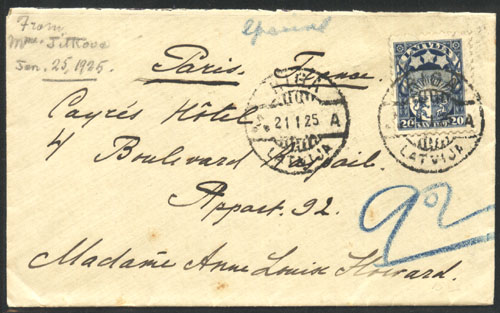 From
Mme. Jitkova
Jan. 25, 1925.
Paris. France.
Cayrés Hôtel
4 Boulevard Raspail.
Appart. 92.
Madame Anne Louise Howard.
92
RIGA
21 1 25 A
LATVIJA
LATVIJA
20 20
A
LATVIJA